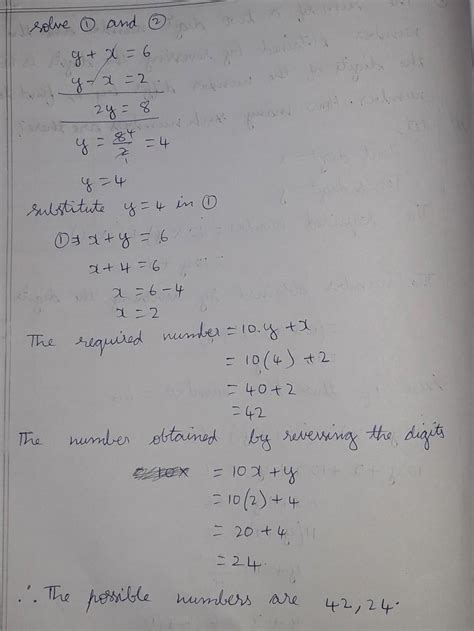 solve ① and ②
y + x = 6
y - x = 2
2y = 8
y = 8/2 = 4
y = 4
substitute y = 4 in ①
① ⇒ x + y = 6
x + 4 = 6
x = 6 - 4
x = 2
The required number = 10.y + x
= 10(4) + 2
= 40 + 2
= 42
The number obtained by reversing the digits
= 10x + y
= 10(2) + 4
= 20 + 4
= 24.
∴ The possible numbers are 42, 24.